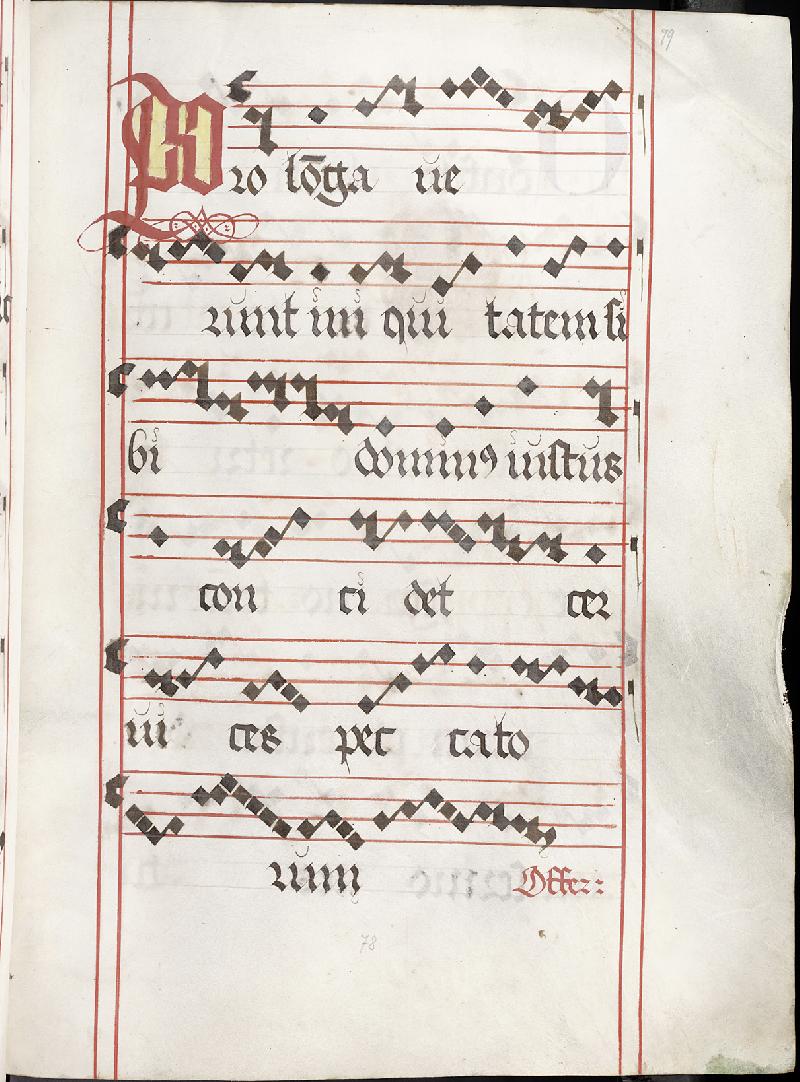 79
Pro lōga ue
runt ini qui tatem si
bi dominꝰ iustus
con ci det cer
ui ces pec cato
rum Offer::
78